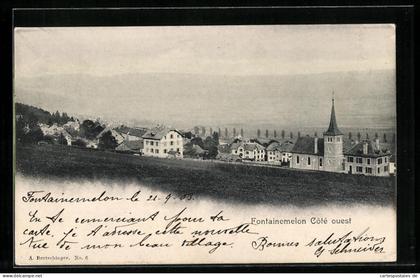 Fontainemelon Côté ouest
Fontainemelon le 21. 9. 03
Fontainemelon Côté ouest
En te remerciant pour ta
carte, je t'adresse cette nouvelle
vue de mon beau village.
Bonnes salutations
Schneider
A. Bertschinger. No. 6